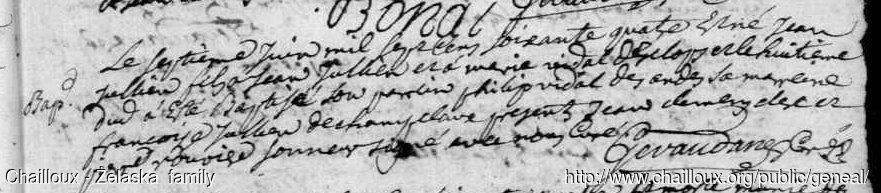 Bonal
Gevaudan
Bap.d
Le septième juin mil sept cens soixante quatre Est né Jean
Jullien fils à Jean Jullien et à marie vidal D'Esclops et le huitième
dud à Esté Baptisé son parrin philip vidal des andes sa marreine
françoise Jullien de champclave presents Jean clemens clerc et
rouvier sonneur signé avec nous Curé
Gevaudan Curé
Chailloux - Želaska family
http://www.chailloux.org/public/geneal/